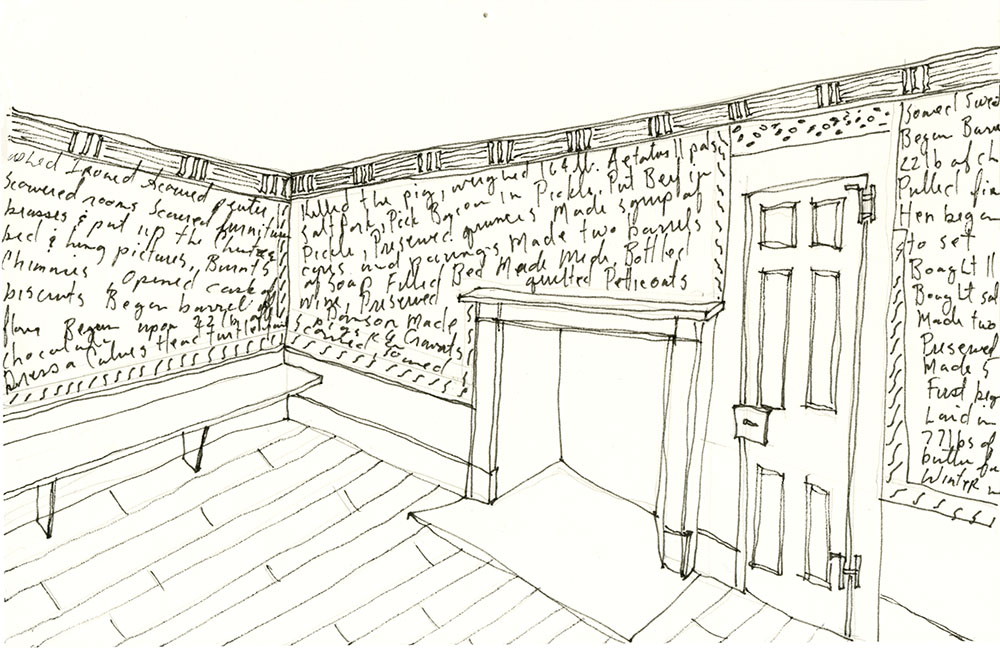 Ironed Scoured pewter,,
Scowered rooms Scoured furniture
brasses & put up the Chintz
bed & hung pictures,, Burnts
Chimnies Opened cask of
biscuits Began barrel of
flour Began upon 22 lb of
chocolate
Dress a Calves Head turtle
Killed the pig, weighed 164 lb.
Salt Pork, Pick Bacon in Pickle, Put Beef in
Pickle, Preserved quinces Made syrup of
cores and parings Made two barrels
of Soap Filled Bed Made Mead, Bottled
wine, Preserved quilted Petticoats
Damson Made
& Cravats
Began Barr
22 lb of ch
Pulled fir
Hen began
to set
Bought 11
Bought sal
Made two
Preserved
Made 5
First beg
Laid in
77 lbs of
butter fo
Winter